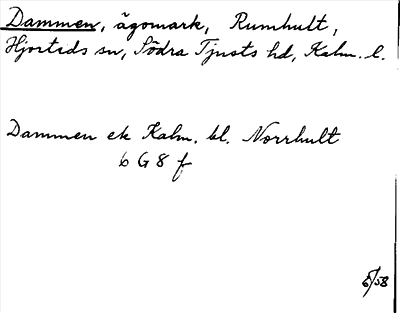 Dammen, ägomark, Rumhult,
Hjorteds sn, Södra Tjusts hd, Kalm. l.
Dammen ek Kalm. bl. Norrhult
6 G 8 f
6/58